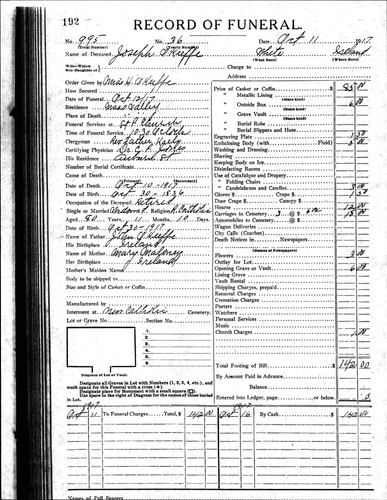 192
RECORD OF FUNERAL.
No. 995 No. 26 Date Oct 11 1917
(Total Number) (Yearly Number)
Name of Deceased Joseph O'Keeffe White Ireland
(What Race) (Where Born)
Wife-Widow
Son-Daughter of Charge to
Address
Order Given by O'Keeffe
How Secured
Date of Funeral Oct 12/17
Place of Death
Funeral Services at Church
Time of Funeral Service 10:30 O'clock
Clergyman Rev Father Kelly
Certifying Physician
His Residence Auburn St
Number of Burial Certificate
Cause of Death
Date of Death Oct 10 - 1917
Date of Birth Oct 30 - 1836
Occupation of the Deceased Retired
Single or Married Religion R. Catholic
Aged 80 years 11 months 10 Days
Date of Birth Oct 30 - 1917
Name of Father John O'Keeffe
His Birthplace Ireland
Name of Mother Mary Maloney
Her Birthplace Ireland
Mother's Maiden Name
Body to be shipped to
Size and Style of Casket or Coffin
Manufactured by
Interment at New Catholic Cemetery
Lot or Grave No. Section No.
1
2
3
4
5
6
7
8
Diagram of Lot or Vault.
Designate all Graves in Lot with Numbers (1, 2, 3, 4, etc.), and
mark space for this Funeral with a cross (+).
Designate place for Monument with a small square (□)
Use space to the right of Diagram for names of those buried
in Lot.
Price of Casket or Coffin $ 85.00
" Metallic Lining
(State kind)
" Outside Box 6.00
(State kind)
" Grave Vault
(State kind)
" Burial Robe
(State kind)
" Burial Slippers and Hose
Engraving Plate
Embalming Body (with Fluid)
Washing and Dressing
Shaving
Keeping Body on Ice
Disinfecting Rooms
Use of Catafalque and Drapery
" Folding Chairs
" Candelabrum and Candles
Gloves $ Crape $
Hearse
Carriages to Cemetery 3 @ $
Automobiles to Cemetery @ $
Wagon Deliveries
City Calls (Coaches)
Death Notices in Newspapers
(Names of Newspapers)
Flowers
Outlay for Lot
Opening Grave or Vault 6.00
Lining Grave
Vault Rental
Shipping Charges, prepaid
Removal Charges
Cremation Charges
Porters
Watchers
Personal Services
Music
Church Charges
Total Footing of Bill $ 142.00
By Amount Paid in Advance
Balance
Entered into Ledger, page or below
1917 1917
Oct 11 To Funeral Charges Total, $ 142 00 Oct 16 By Cash $ 142.00
Names of Pall Bearers